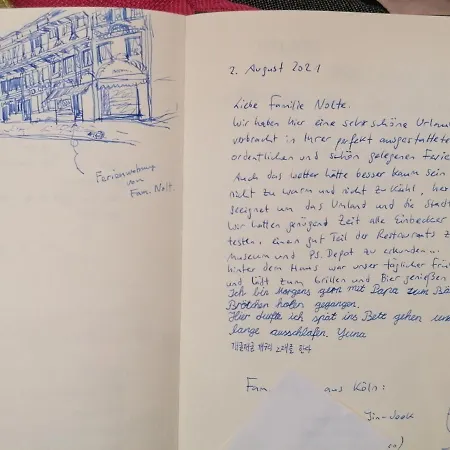 Ferienwohnung
von
Fam. Nolt.
2. August 2021
Liebe Familie Nolte.
Wir haben hier eine sehr schöne Urlau
verbracht in Ihrer perfekt ausgestattete
ordentlichen und schön gelegenen Ferie
Auch das Wetter hätte besser kaum sein
nicht zu warm und nicht zu kühl, her
geeignet um das Umland und die Stadt
Wir hatten genügend Zeit alle Einbecker
testen, einen gut Teil der Restaurants z
Museum und PS. Depot zu erkunden
hinter dem Haus war unser täglicher Frü
und lädt zum Grillen und Bier genießen
Ich bin Morgens gern mit Papa zum Bä
Brötchen holen gegangen.
Hier durfte ich spät ins Bett gehen und
lange ausschlafen. Yuna
개굴개굴 개구리 노래를 한다
Fam. aus Köln:
Jin-Sook